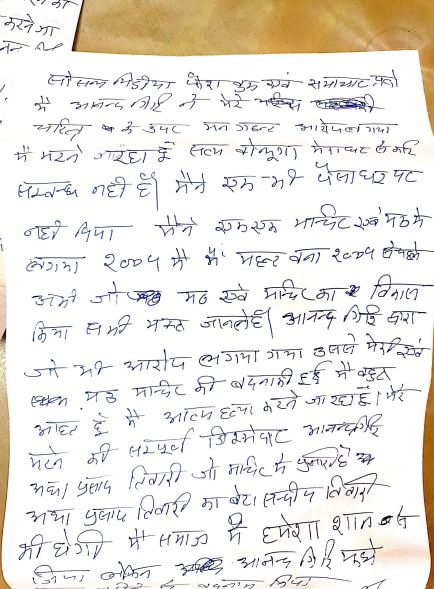 करने जा
सोसल मिडीया फेस बुक एवं समाचार पत्रो
मै आनन्द गिरि ने मेरे
चरित्र के उपर मन गढन्त आरोप लगाया
मै मरने जा रहा हूँ सत्य बोलूगा मेरा घर से कोई
सम्बन्ध नही है। मैने एक भी पैसा घर पर
नही दिया मैने एक एक मन्दिर एवं मठ मे
लगाया २००४ मै मै महन्त बना २००४ से
अभी जो मठ एवं मन्दिर का विकास
किया सभी भक्त जानते है। आनन्द गिरि द्वारा
जो भी आरोप लगाया गया उससे मेरी एवं
मठ मन्दिर की बदनामी हुई मै बहुत
आहत हूँ मै आत्म हत्या करने जा रहा हूँ। मेरे
मरने की सम्पूर्ण जिम्मेदारी आनन्द गिरि
अद्या प्रसाद तिवारी जो मन्दिर मे पुजारी है
अद्या प्रसाद तिवारी का बेटा सन्दीप तिवारी
की होगी मै समाज मे हमेशा शान से
जिया लेकिन आनन्द गिरि मुझे
बदनाम किया